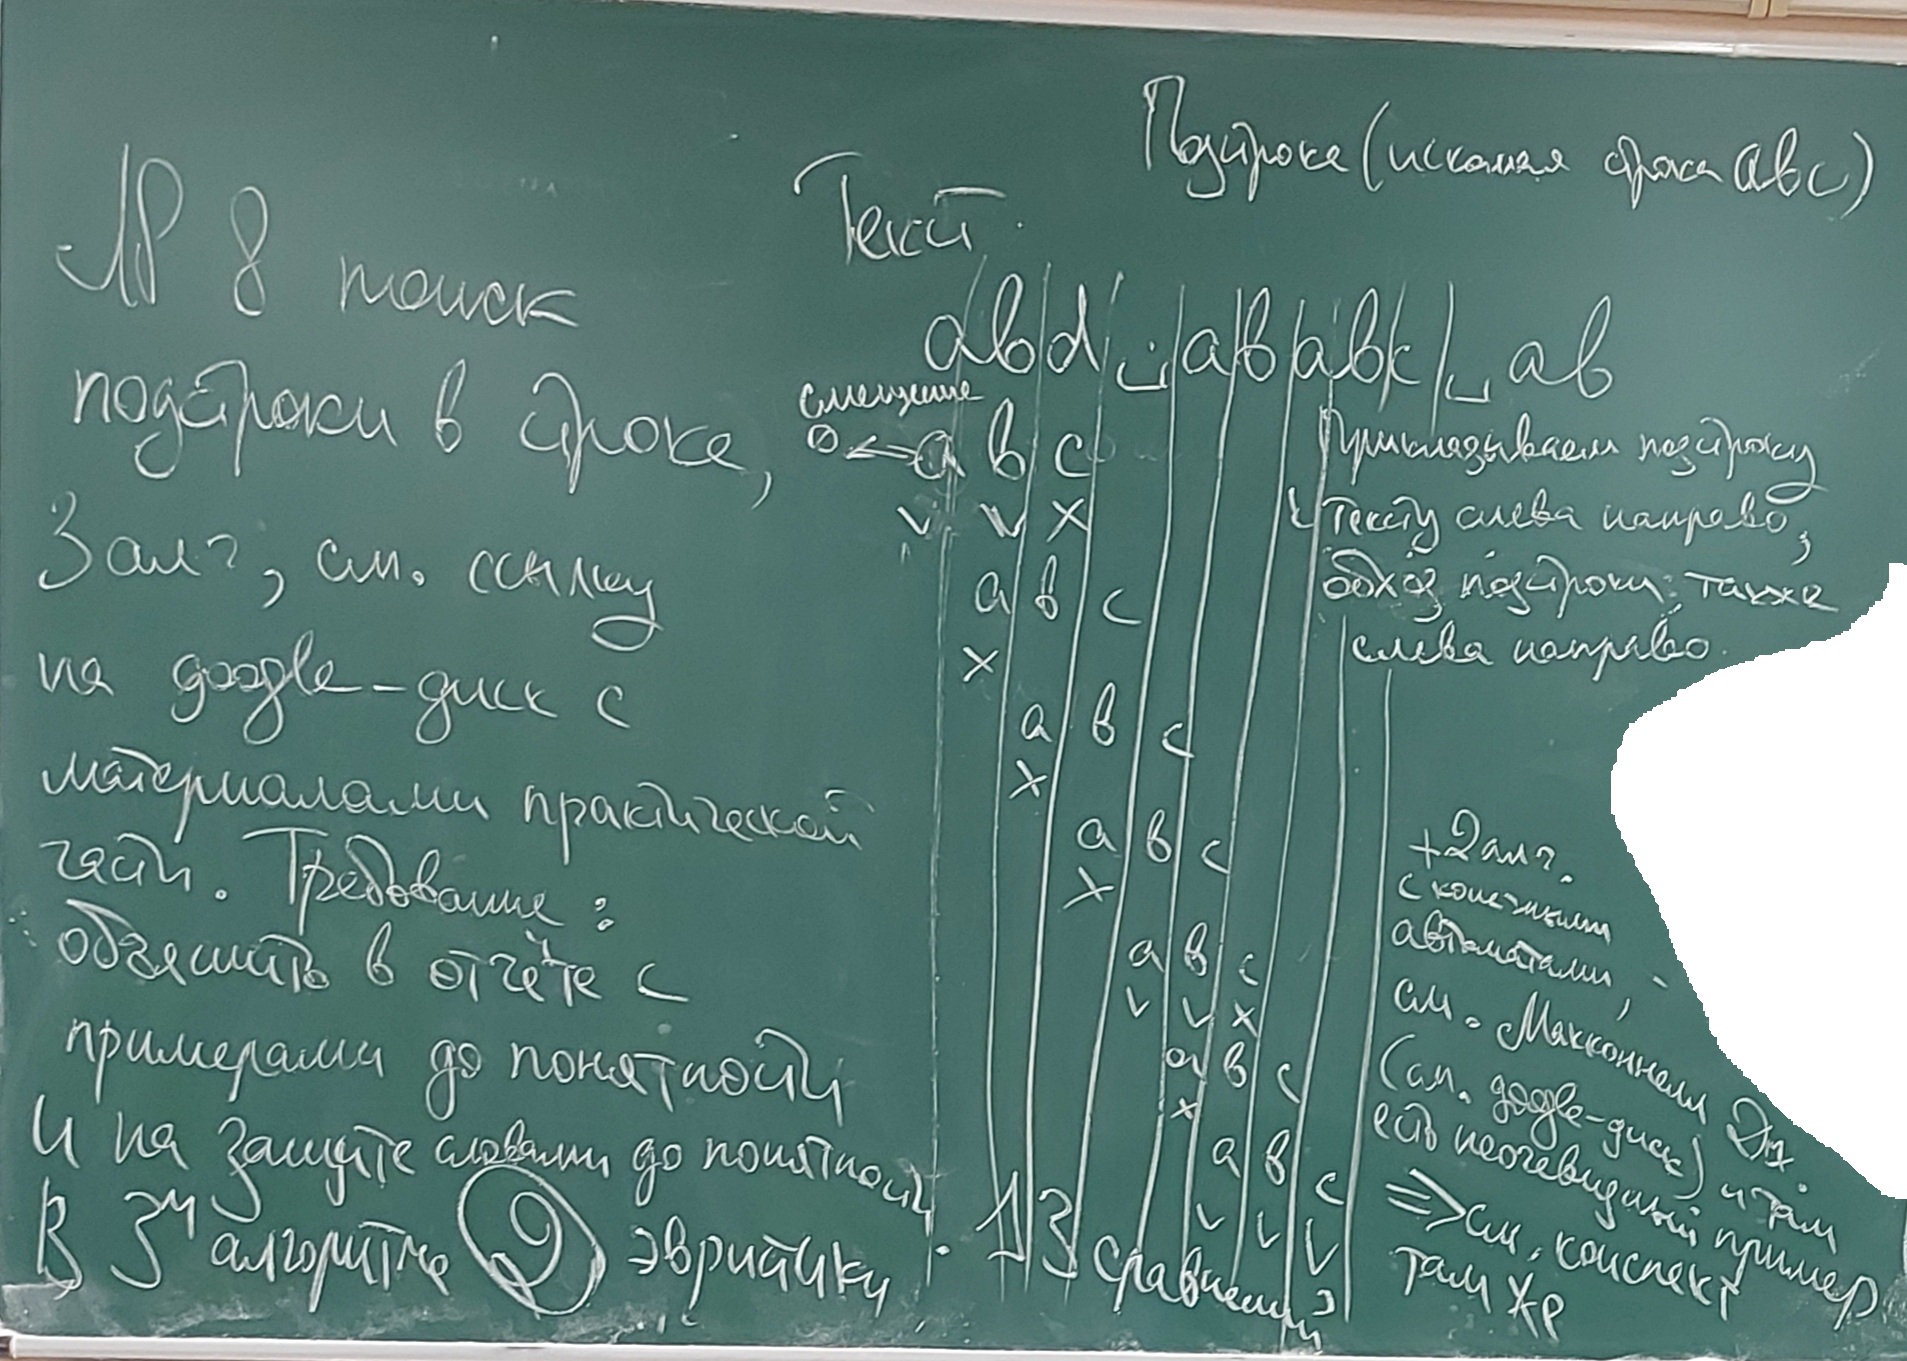 № 8 поиск
подстроки в строке,
3 алг, см. ссылку
на google-диск с
материалами практической
части. Требование:
объяснить в отчёте с
примерами до понятности
и на защите словами до понятности
В 3м алгоритме 2 эвристики.
Подстрока (искомая строка abc)
Текст
abd␣ababc␣ab
смещение
0 ← a b c
v v x
a b c
x
a b c
x
a b c
x
a b c
v v x
a b c
x
a b c
v v v
13 сравнений
Прикладываем подстроку
к тексту слева направо,
обход подстроки также
слева направо.
+2 алг.
с конечными
автоматами,
см. Макконнелл Дж.
(см. google-диск) и там
есть неочевидный пример
=> см. конспект
там же